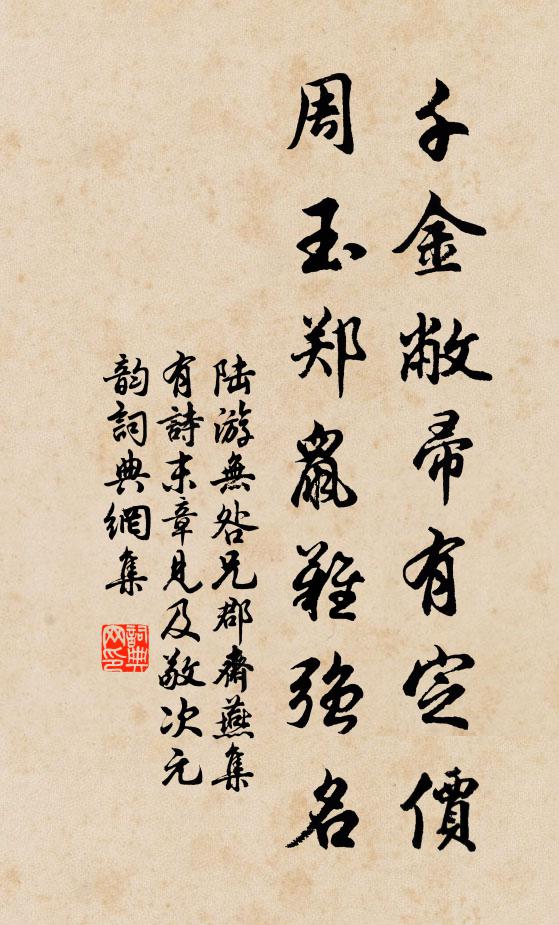 千金敝帚有定價
周玉郑鼠難强名
陆游無咎兄郡齋燕集
有詩末章見及敬次元
韵詞典網集
詞典
网印